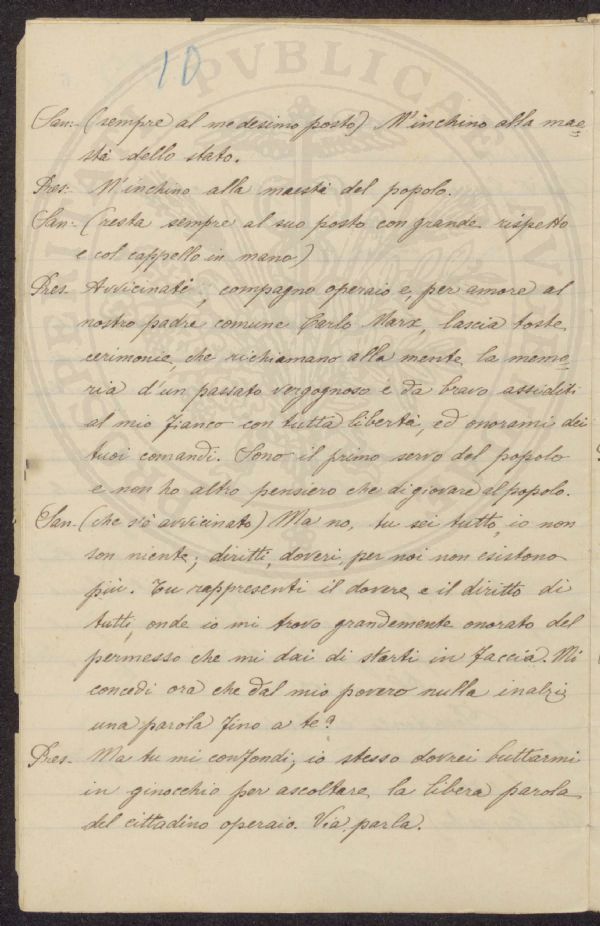 10
San:- (sempre al medesimo posto) M'inchino alla mae=
stà dello stato.
Pres:- M'inchino alla maestà del popolo.
San:- (resta sempre al suo posto con grande rispetto
e col cappello in mano)
Pres. Avvicinati, compagno operaio e, per amore al
nostro padre comune Carlo Marx, lascia toste
cerimonie, che richiamano alla mente la memo=
ria d'un passato vergognoso e da bravo assiditi
al mio fianco con tutta libertà, ed onorami dei
tuoi comandi. Sono il primo servo del popolo
e non ho altro pensiero che di giovare al popolo.
San- (che s'è avvicinato) Ma no, tu sei tutto, io non
son niente; diritti, doveri, per noi non esistono
più. Tu rappresenti il dovere e il diritto di
tutti, onde io mi trovo grandemente onorato del
permesso che mi dai di starti in faccia. Mi
concedi ora che dal mio povero nulla inalzi
una parola fino a te?
Pres- Ma tu mi confondi; io stesso dovrei buttarmi
in ginocchio per ascoltare la libera parola
del cittadino operaio. Via, parla.